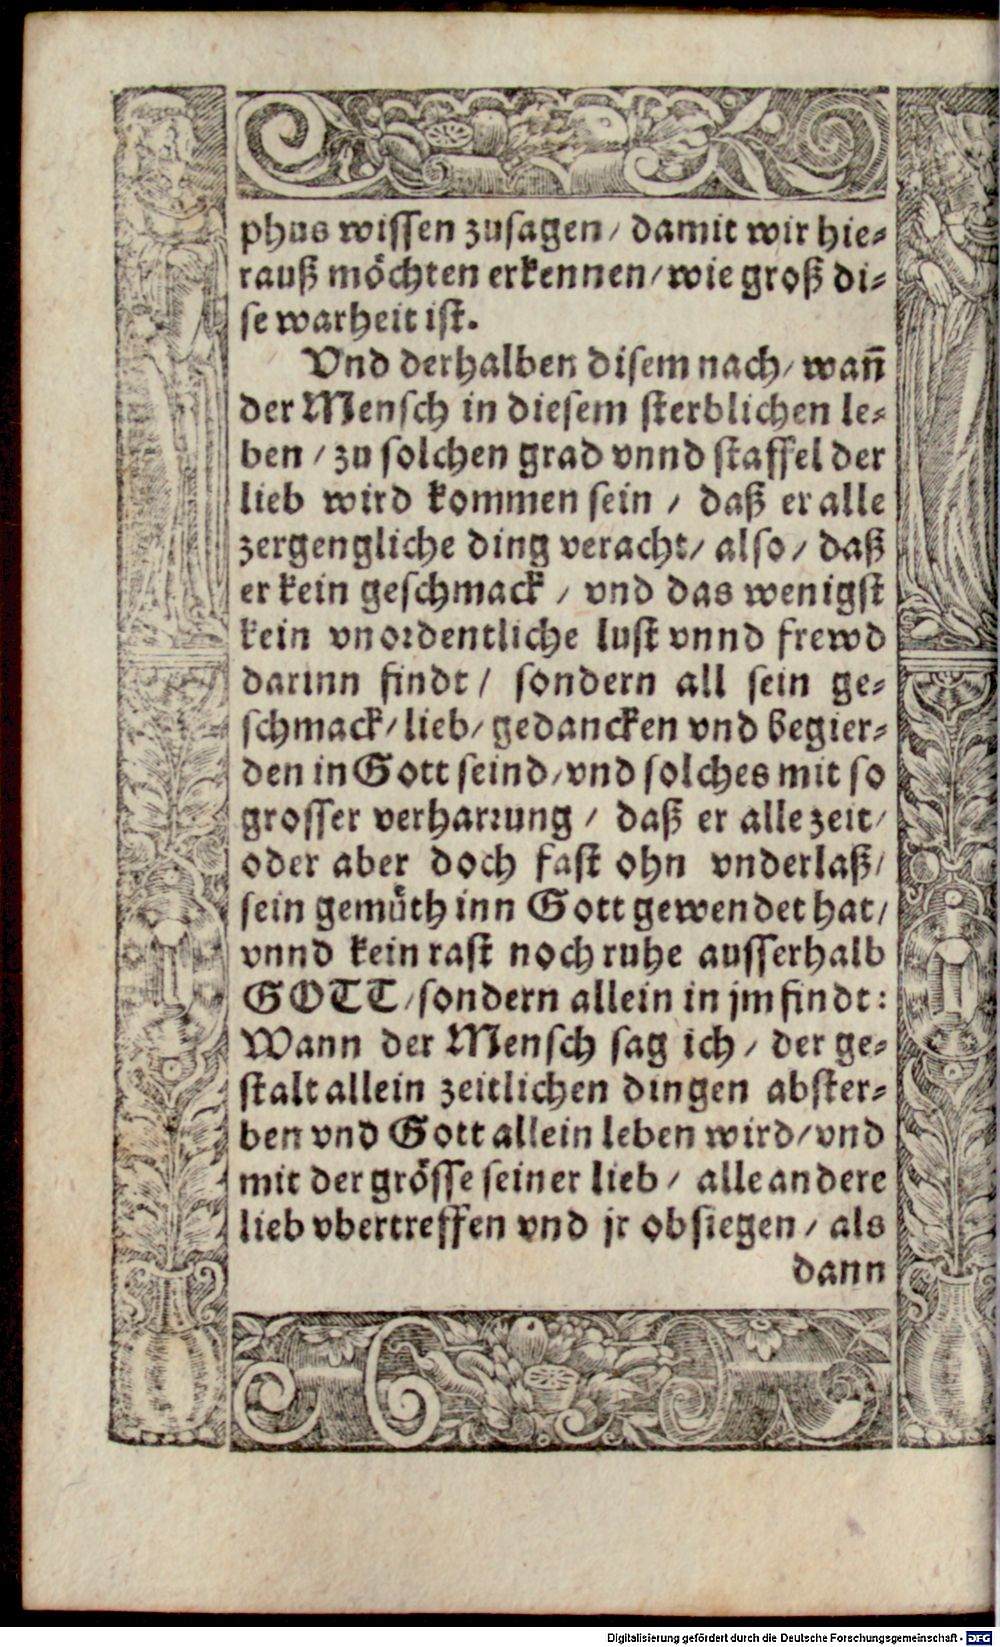 phus wissen zusagen / damit wir hie⸗
rauß möchten erkennen / wie groß di⸗
se warheit ist.
Vnd derhalben disem nach / wañ
der Mensch in diesem sterblichen le⸗
ben / zu solchen grad vnnd staffel der
lieb wird kommen sein / daß er alle
zergengliche ding veracht / also / daß
er kein geschmack / vnd das wenigst
kein vnordentliche lust vnnd frewd
darinn findt / sondern all sein ge⸗
schmack / lieb / gedancken vnd begier⸗
den in Gott seind / vnd solches mit so
grosser verharrung / daß er alle zeit /
oder aber doch fast ohn vnderlaß /
sein gemüth inn Gott gewendet hat /
vnnd kein rast noch ruhe ausserhalb
GOTT / sondern allein in jm findt:
Wann der Mensch sag ich / der ge⸗
stalt allein zeitlichen dingen abster⸗
ben vnd Gott allein leben wird / vnd
mit der grösse seiner lieb / alle andere
lieb vbertreffen vnd jr obsiegen / als
dann
Digitalisierung gefördert durch die Deutsche Forschungsgemeinschaft - DFG